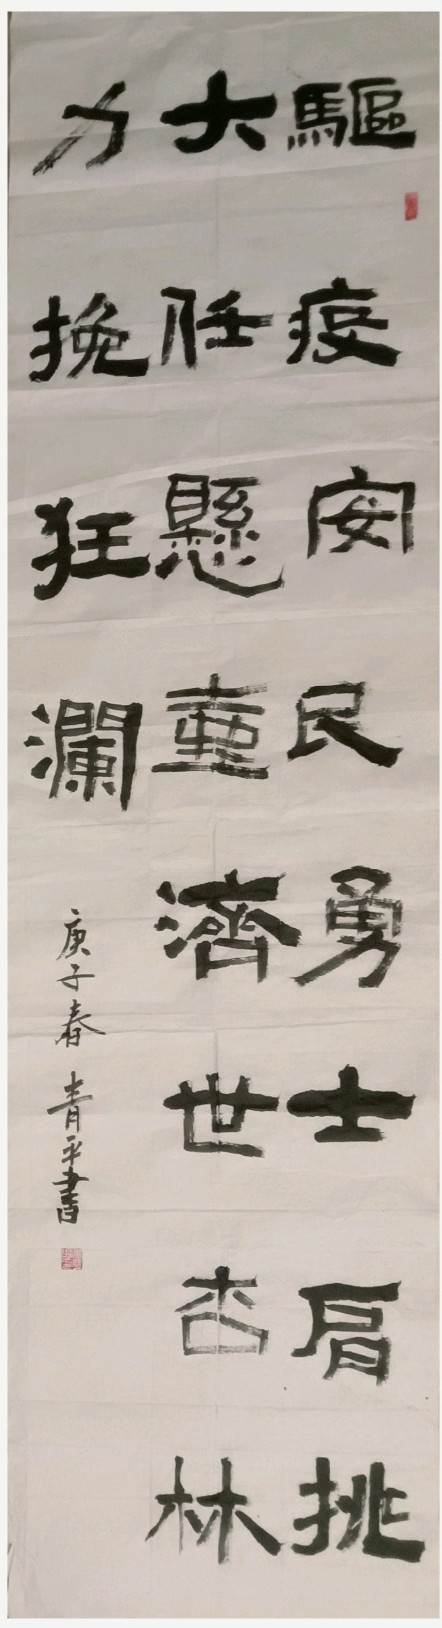 驅疫安民勇士肩挑
大任懸壺濟世杏林
力挽狂瀾
庚子春 青平書